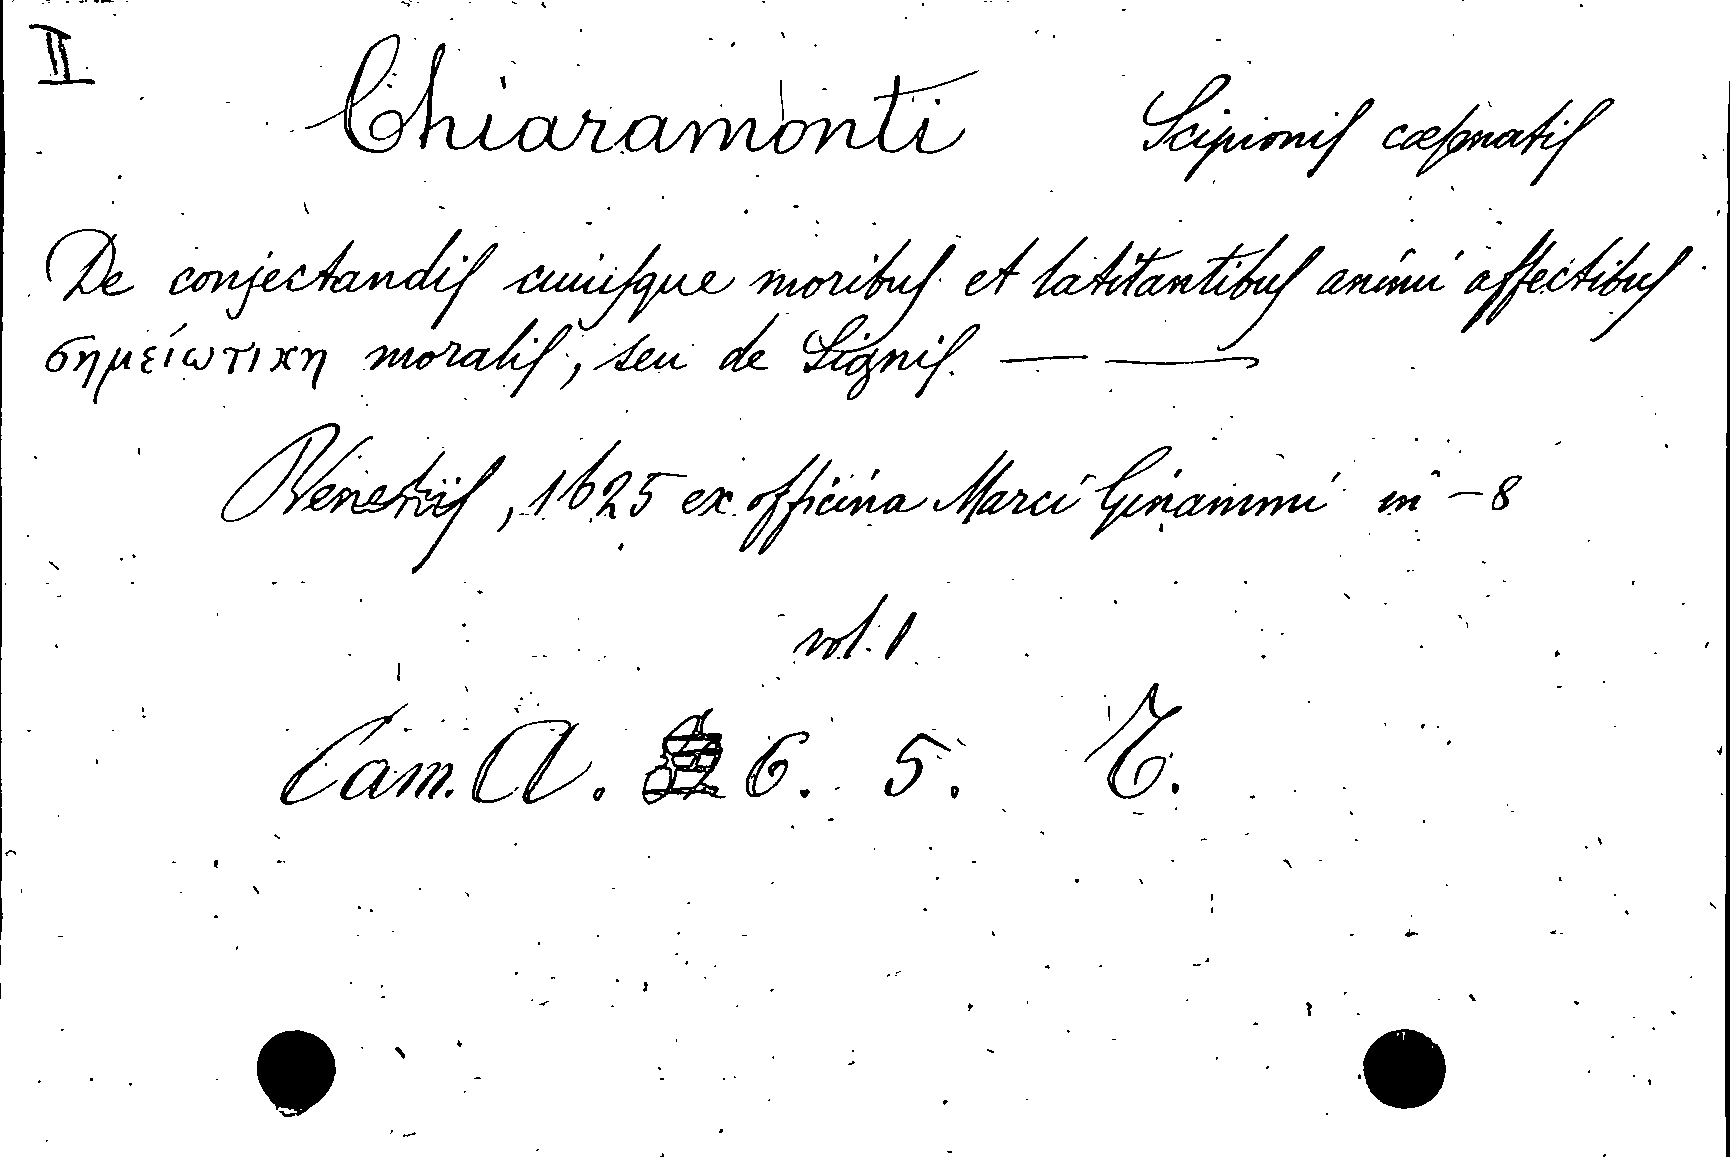 II
Chiaramonti Scipionis cæsenatis
De conjectandis cuiusque moribus et latitantibus animi affectibus
σημείωτιχη moralis, seu de Signis. — —
Venetiis, 1625 ex officina Marci Ginammi in -8
vol. 1
Cam. A. 6. 5. T.